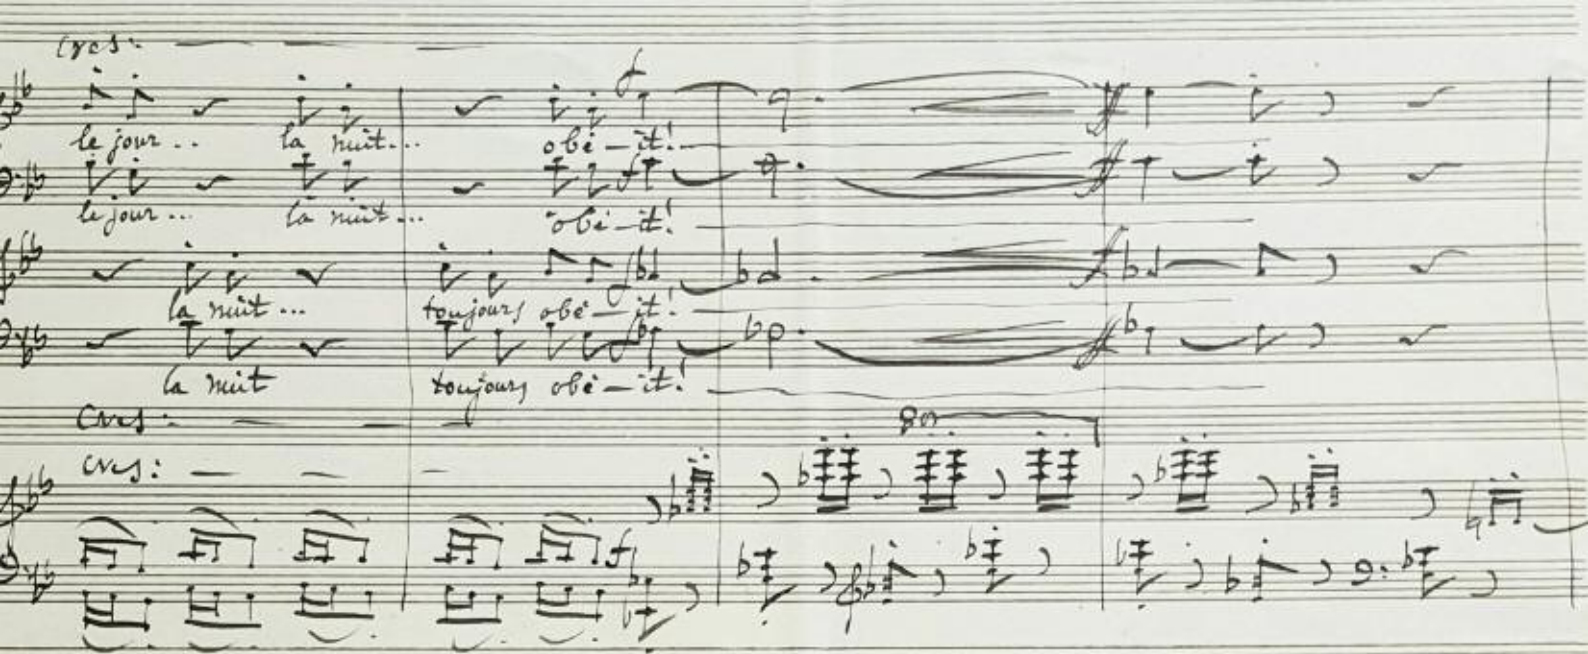 Cres:
f
le jour.. la nuit... obé-it!
ff
le jour... la nuit... obé-it!
f
ff
la nuit... toujours obé-it!
f
ff
la nuit toujours obé-it!
f
ff
Cres:
8va
cres:
f